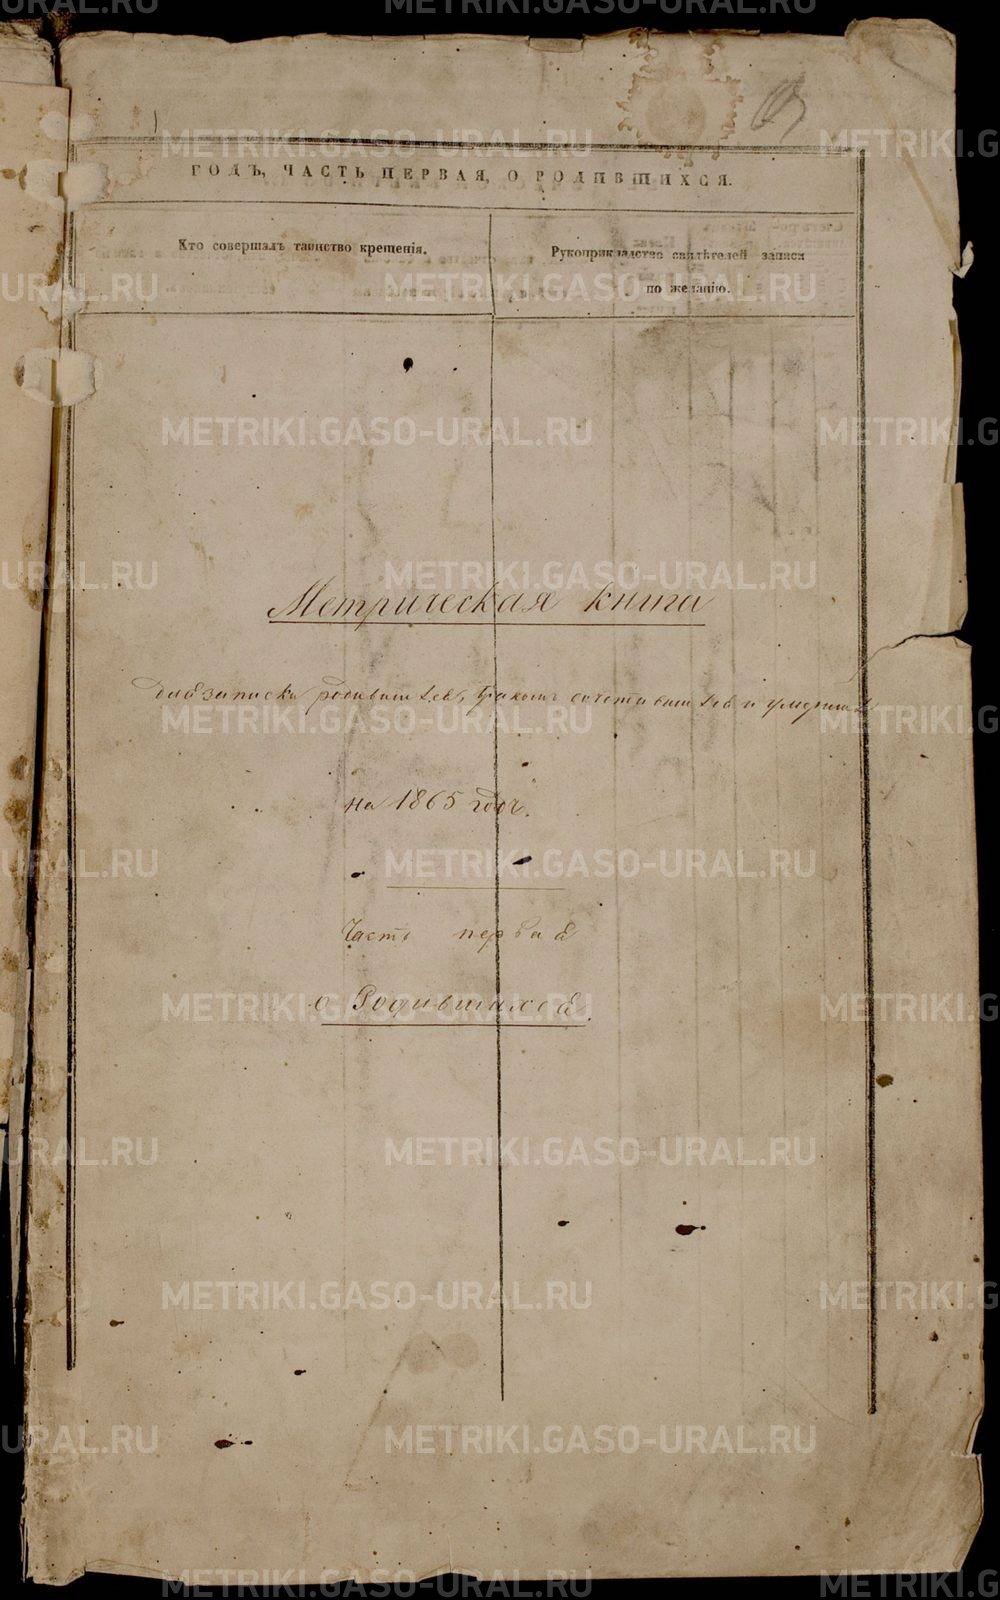 ГОДЪ, ЧАСТЬ ПЕРВАЯ, О РОДИВШИХСЯ.
Кто совершалъ таинство крещенія.
Рукоприкладство свидѣтелей записи
по желанію.
Метрическая книга
для записки родившихся, бракомъ сочетавшихся и умерших
на 1865 годъ.
Часть первая
о Родившихся.
METRIKI.GASO-URAL.RU